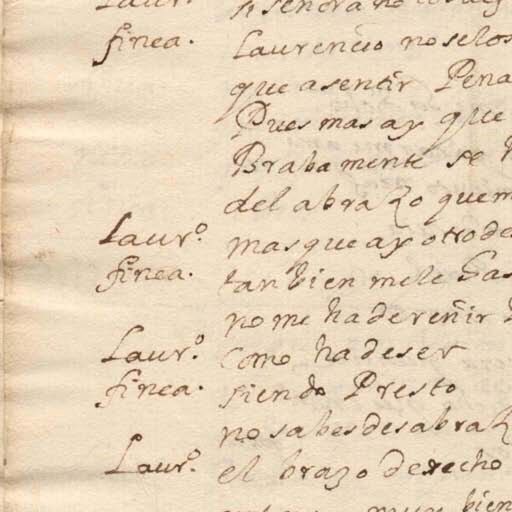 finea. Laurencio no selos
que a sentir Pena
Pues mas ay que
Brabamente se
del abrazo que m
Laur.º mas que ay otro de
finea. tanbien me le
no me ha de reñir
Laur.º Como ha de ser
finea. siendo Presto
no sabes desabraz
Laur.º el brazo derecho
muy bien